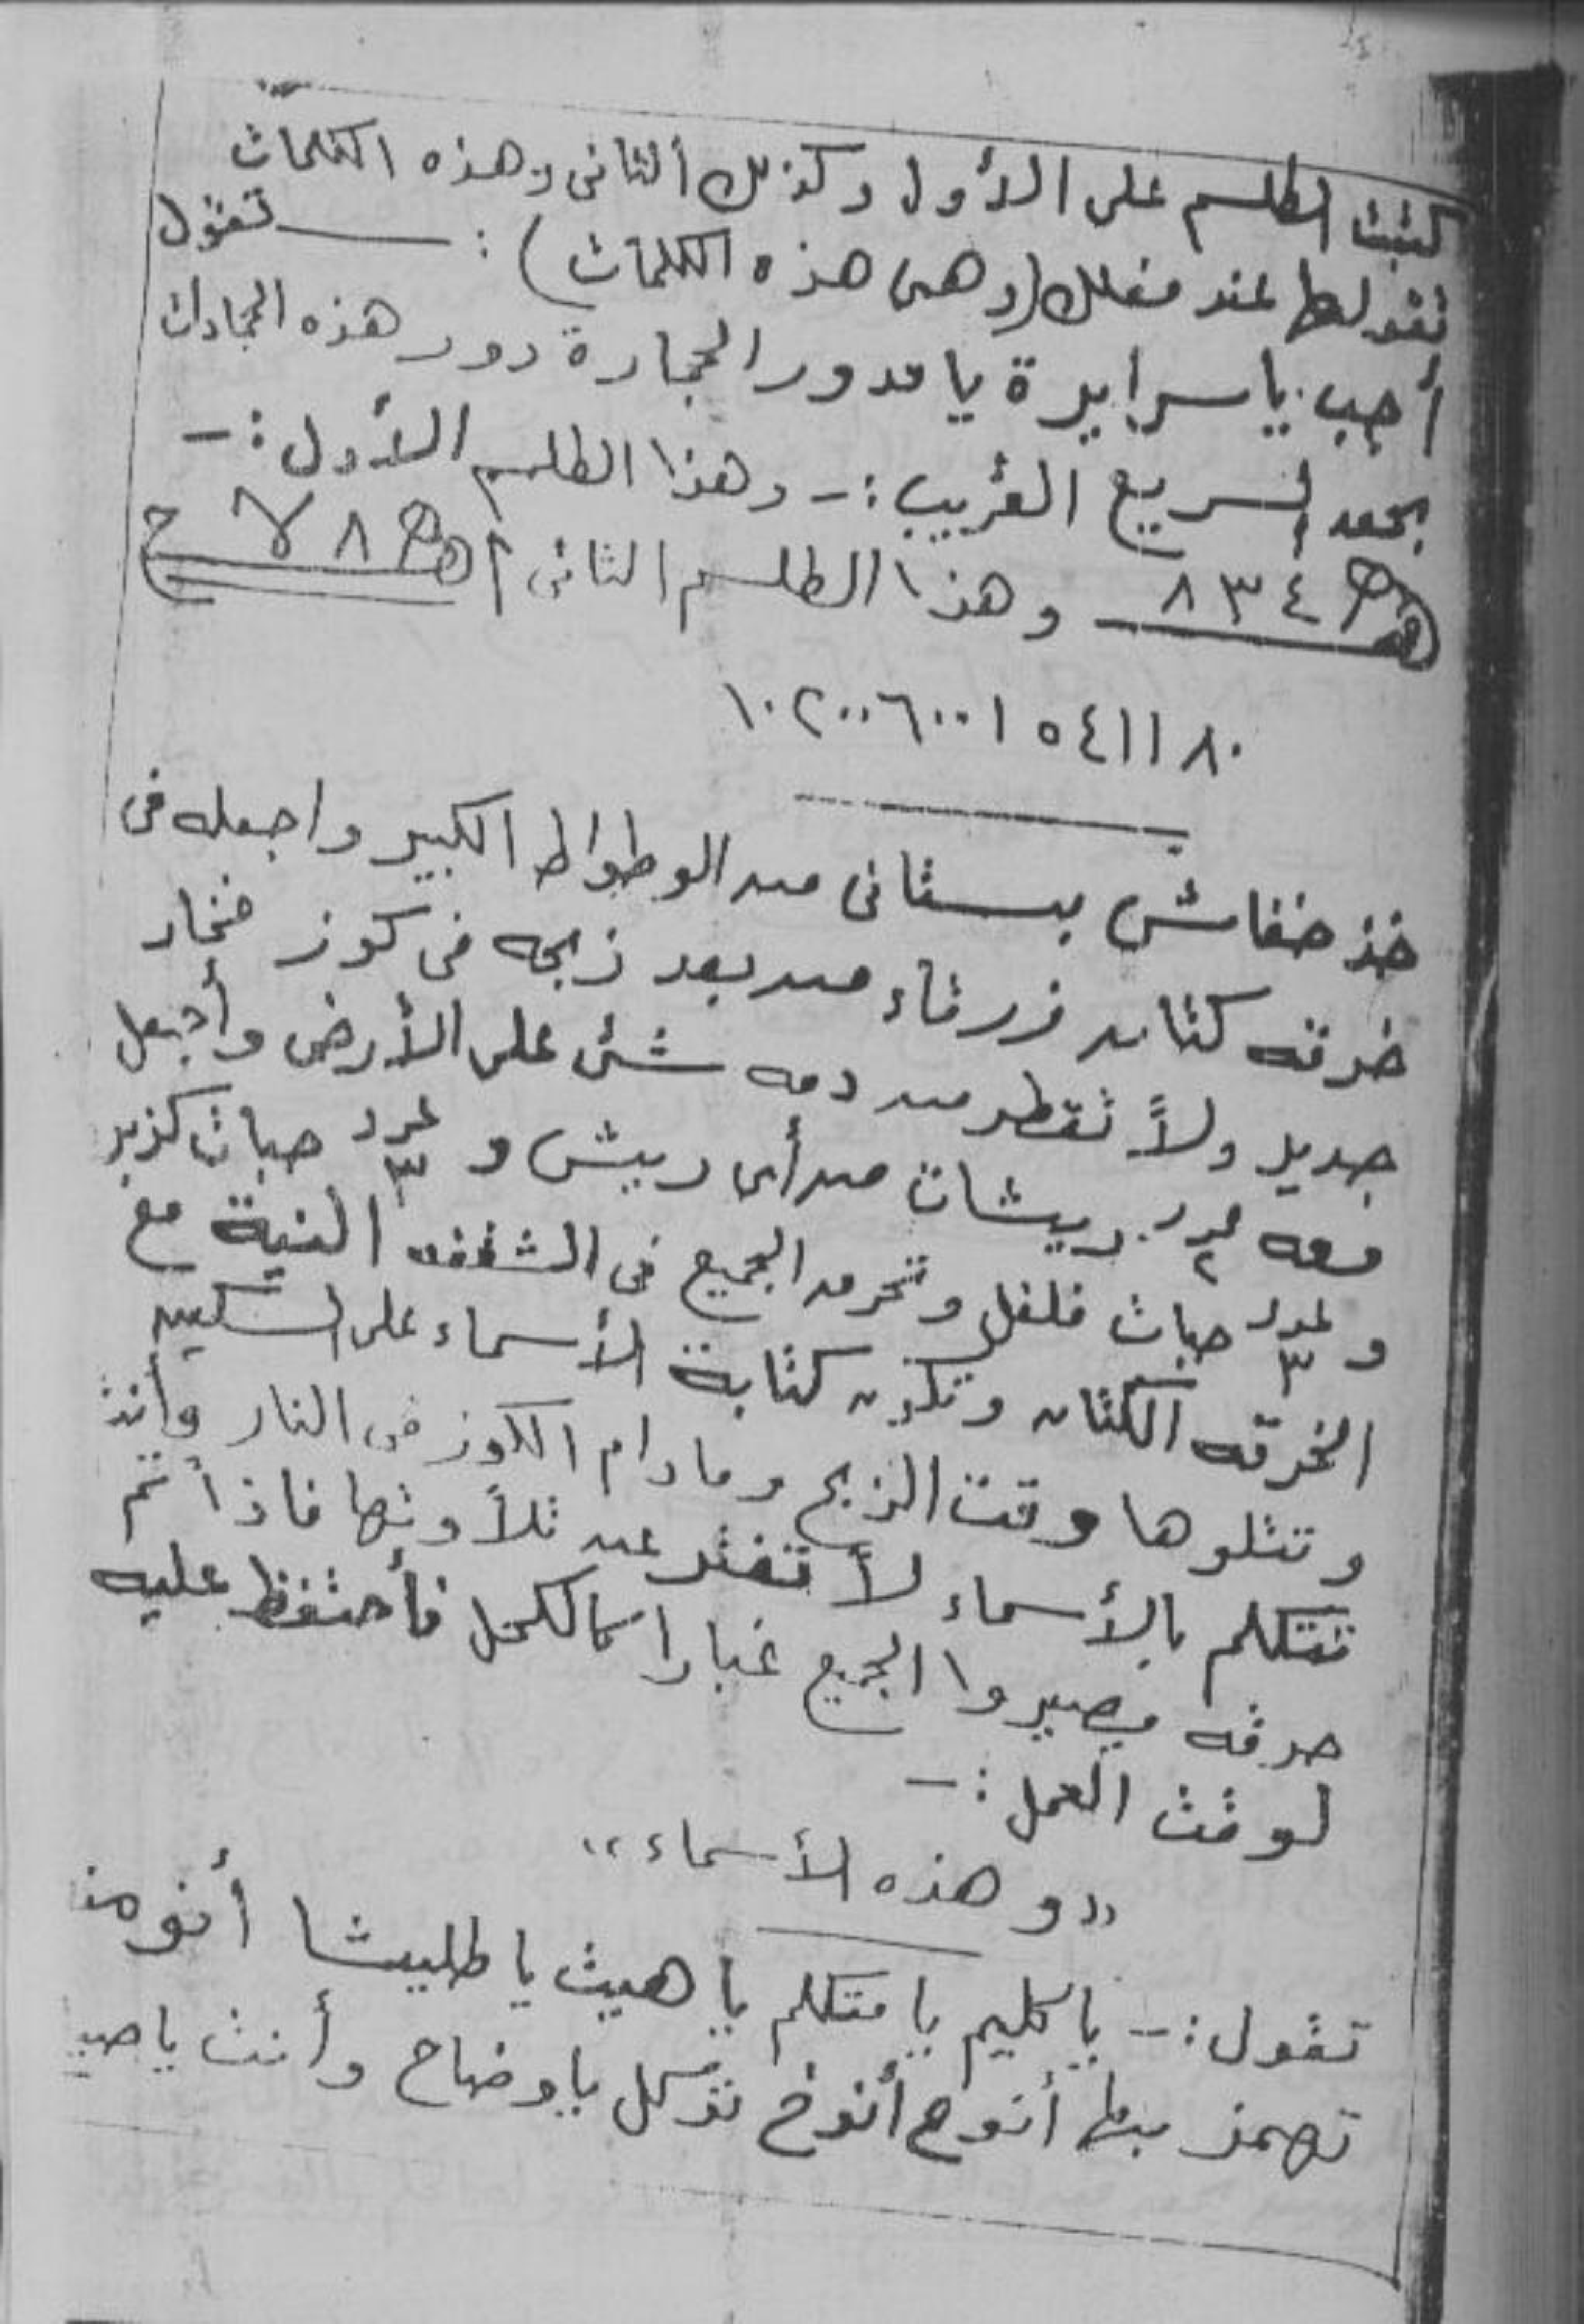 كتبت الطلسم على الأول وكذلك الثانى وهذه الكلمات
تقولها عند فعلك (وهى هذه الكلمات) : ــــ تقول
أجب يا سرابرة يا مدور الحجارة دور هذه الجادات
بحق السريع القريب :- وهذا الطلسم الأول :-
٨٣٤ وهذا الطلسم الثانى
١٠٢٠٠٦٠٠١٥٤١١٨٠
خذ خفاش بستانى من الوطواط الكبير واجعله فى
خرقه كتان زرقاء من بعد ذبحه فى كوز فخار
جديد ولا تقطر من دمه شئ على الأرض وأجعل
معه عدد ٢ ريشات من أى ريش و عدد ٣ حبات كزبر
و عدد ٣ حبات فلفل وتحرق الجميع فى الشقفه النية مع
الخرقه الكتان وتكون كتابة الأسماء على السكين
وتتلوها وقت الذبح ومادام الكوز فى النار وأنت
تتكلم بالأسماء لا تفتر عن تلاوتها فاذا تم
حرقه يصيروا الجميع غبارا كالكحل فأحتفظ عليه
لوقت العمل :-
"وهذه الأسماء"
تقول :- يا كليم يا متكلم يا هيث يا طليشا أنوخ
تهمذ بها أنوح أنوخ توكل يا وضاح وأنت يا